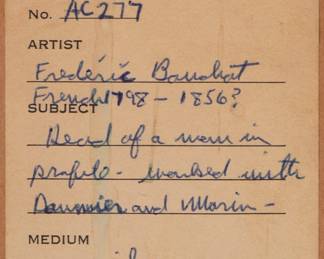 No. AC277
ARTIST
Frederic Bouchot
French 1798 - 1856?
SUBJECT
Head of a man in
profile - worked with
Daumier and Morin -
MEDIUM